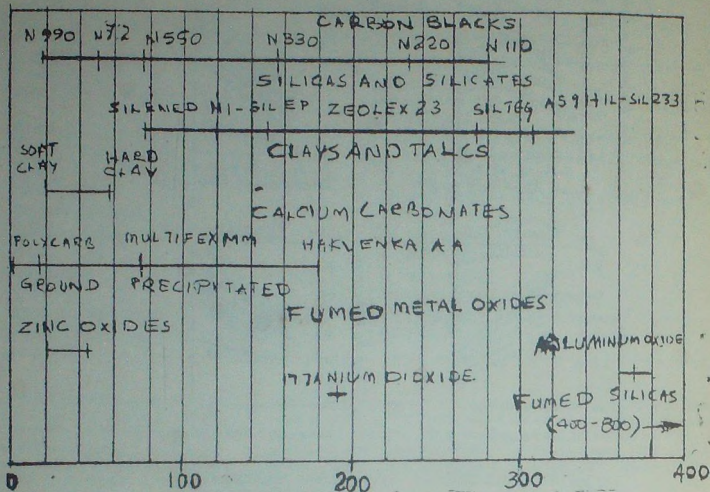 CARBON BLACKS
N990 N72 N550 N330 N220 N110
SILICAS AND SILICATES
SILENED HI-SILEP ZEOLEX 23 SILTEG HIL-SIL233
SOFT CLAY HARD CLAY CLAYS AND TALCS
CALCIUM CARBONATES
POLYCARB MULTIFEXMM HAKUENKA AA
GROUND PRECIPITATED
FUMED METAL OXIDES
ZINC OXIDES
ALUMINUM OXIDE
TITANIUM DIOXIDE
FUMED SILICAS
(400-800)
0 100 200 300 400